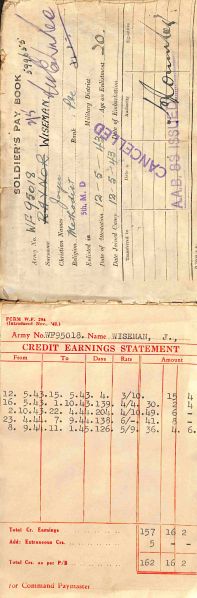 SOLDIER'S PAY BOOK
Army No. WF 95018
Surname RAYNOR WISEMAN
Christian Names Joyce
Religion Methodist Rank Pte
Enlisted in 5th. M.D Military District
Date of Attestation 12-5-43 Age on Enlistment 20
Date Joined Camp 12-5-43 Date of Embarkation
Transferred to
CANCELLED
A.A.B. 83 ISSUED
FORM W.F. 294
(Introduced Nov., '42.)
Army No. WF95018. Name WISEMAN, J.,
CREDIT EARNINGS STATEMENT
From To Days Rate Amount
12. 5.43. 15. 5.43. 4. 3/10. 15 4
16. 5.43. 1.10.43. 139. 4/4. 30. 2 4
2.10.43. 22. 4.44. 204. 4/10. 49. 6 -
23. 4.44. 7. 9.44. 138. 6/-. 41. 8 -
8. 9.44. 11. 1.45. 126. 5/9. 36. 4. 6.
Total Cr. Earnings 157 16 2
Add: Extraneous Crs. 5 - -
Total Crs. as per P/B 162 16 2
for Command Paymaster